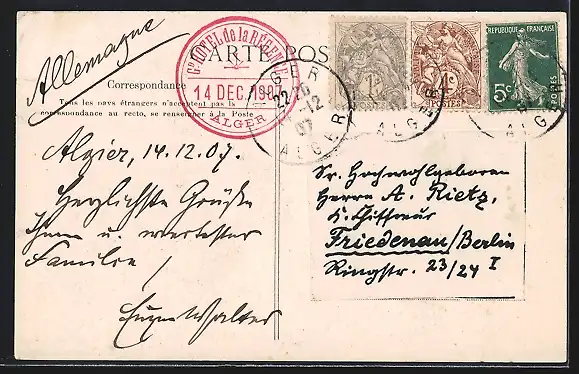 Allemagne
CARTE POS
Gd HOTEL de la RÉGENCE
14 DEC. 1907
ALGER
1c
POSTES
4c
POSTES
REPUBLIQUE FRANÇAISE
5c
POSTES
ALGER
22 20
12
07
ALGER
Correspondance
Tous les pays étrangers n'acceptent pas la
correspondance au recto, se renseigner à la Poste
Algier, 14.12.07.
Herzlichste Grüße
Ihnen u. wertester
Familie
Eugen Walter
Sr. Hochwohlgeboren
Herrn A. Rietz,
Friedenau/Berlin
Ringstr. 23/24 I